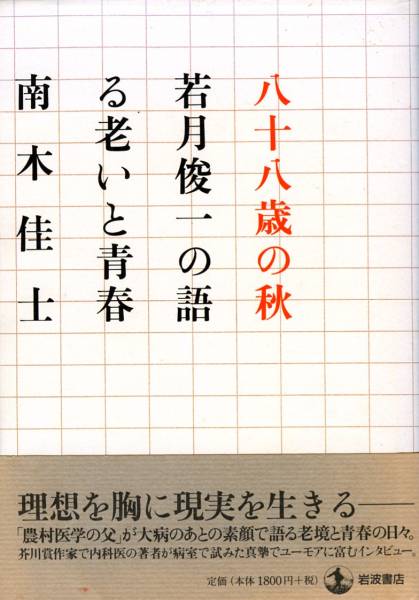 八十八歳の秋
若月俊一の語
る老いと青春
南木佳士
理想を胸に現実を生きる――
「農村医学の父」が大病のあとの素顔で語る老境と青春の日々。
芥川賞作家で内科医の著者が病室で試みた真摯でユーモアに富むインタビュー。
定価（本体1800円+税） 岩波書店